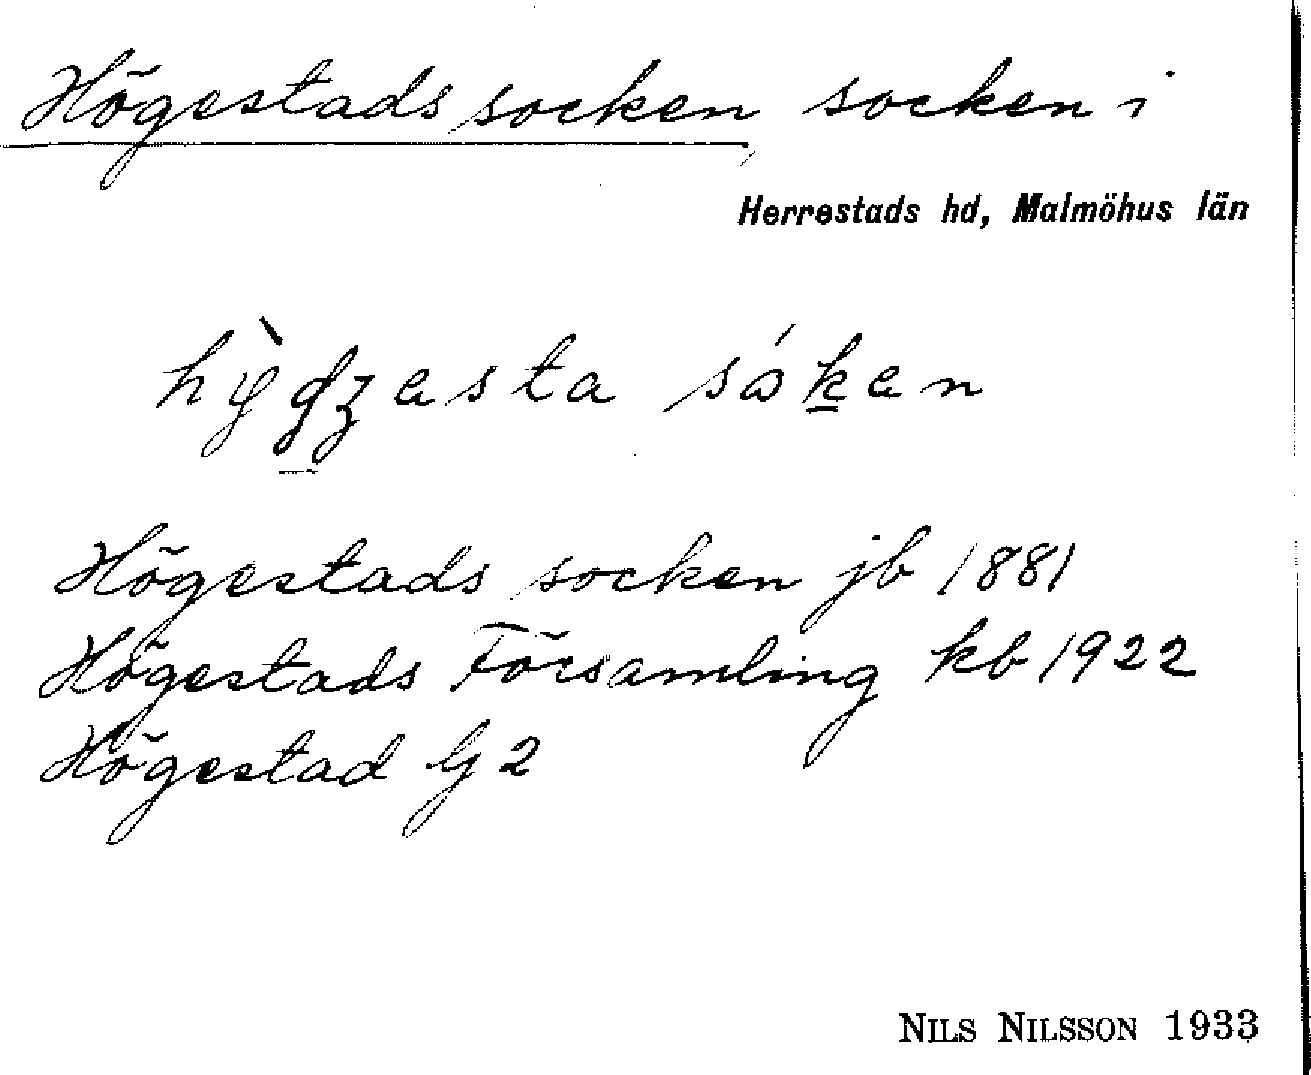 Högestads socken, socken i
Herrestads hd, Malmöhus län
Högestads socken jb 1881
Högestads Församling kb 1922
Högestad G2
NILS NILSSON 1933